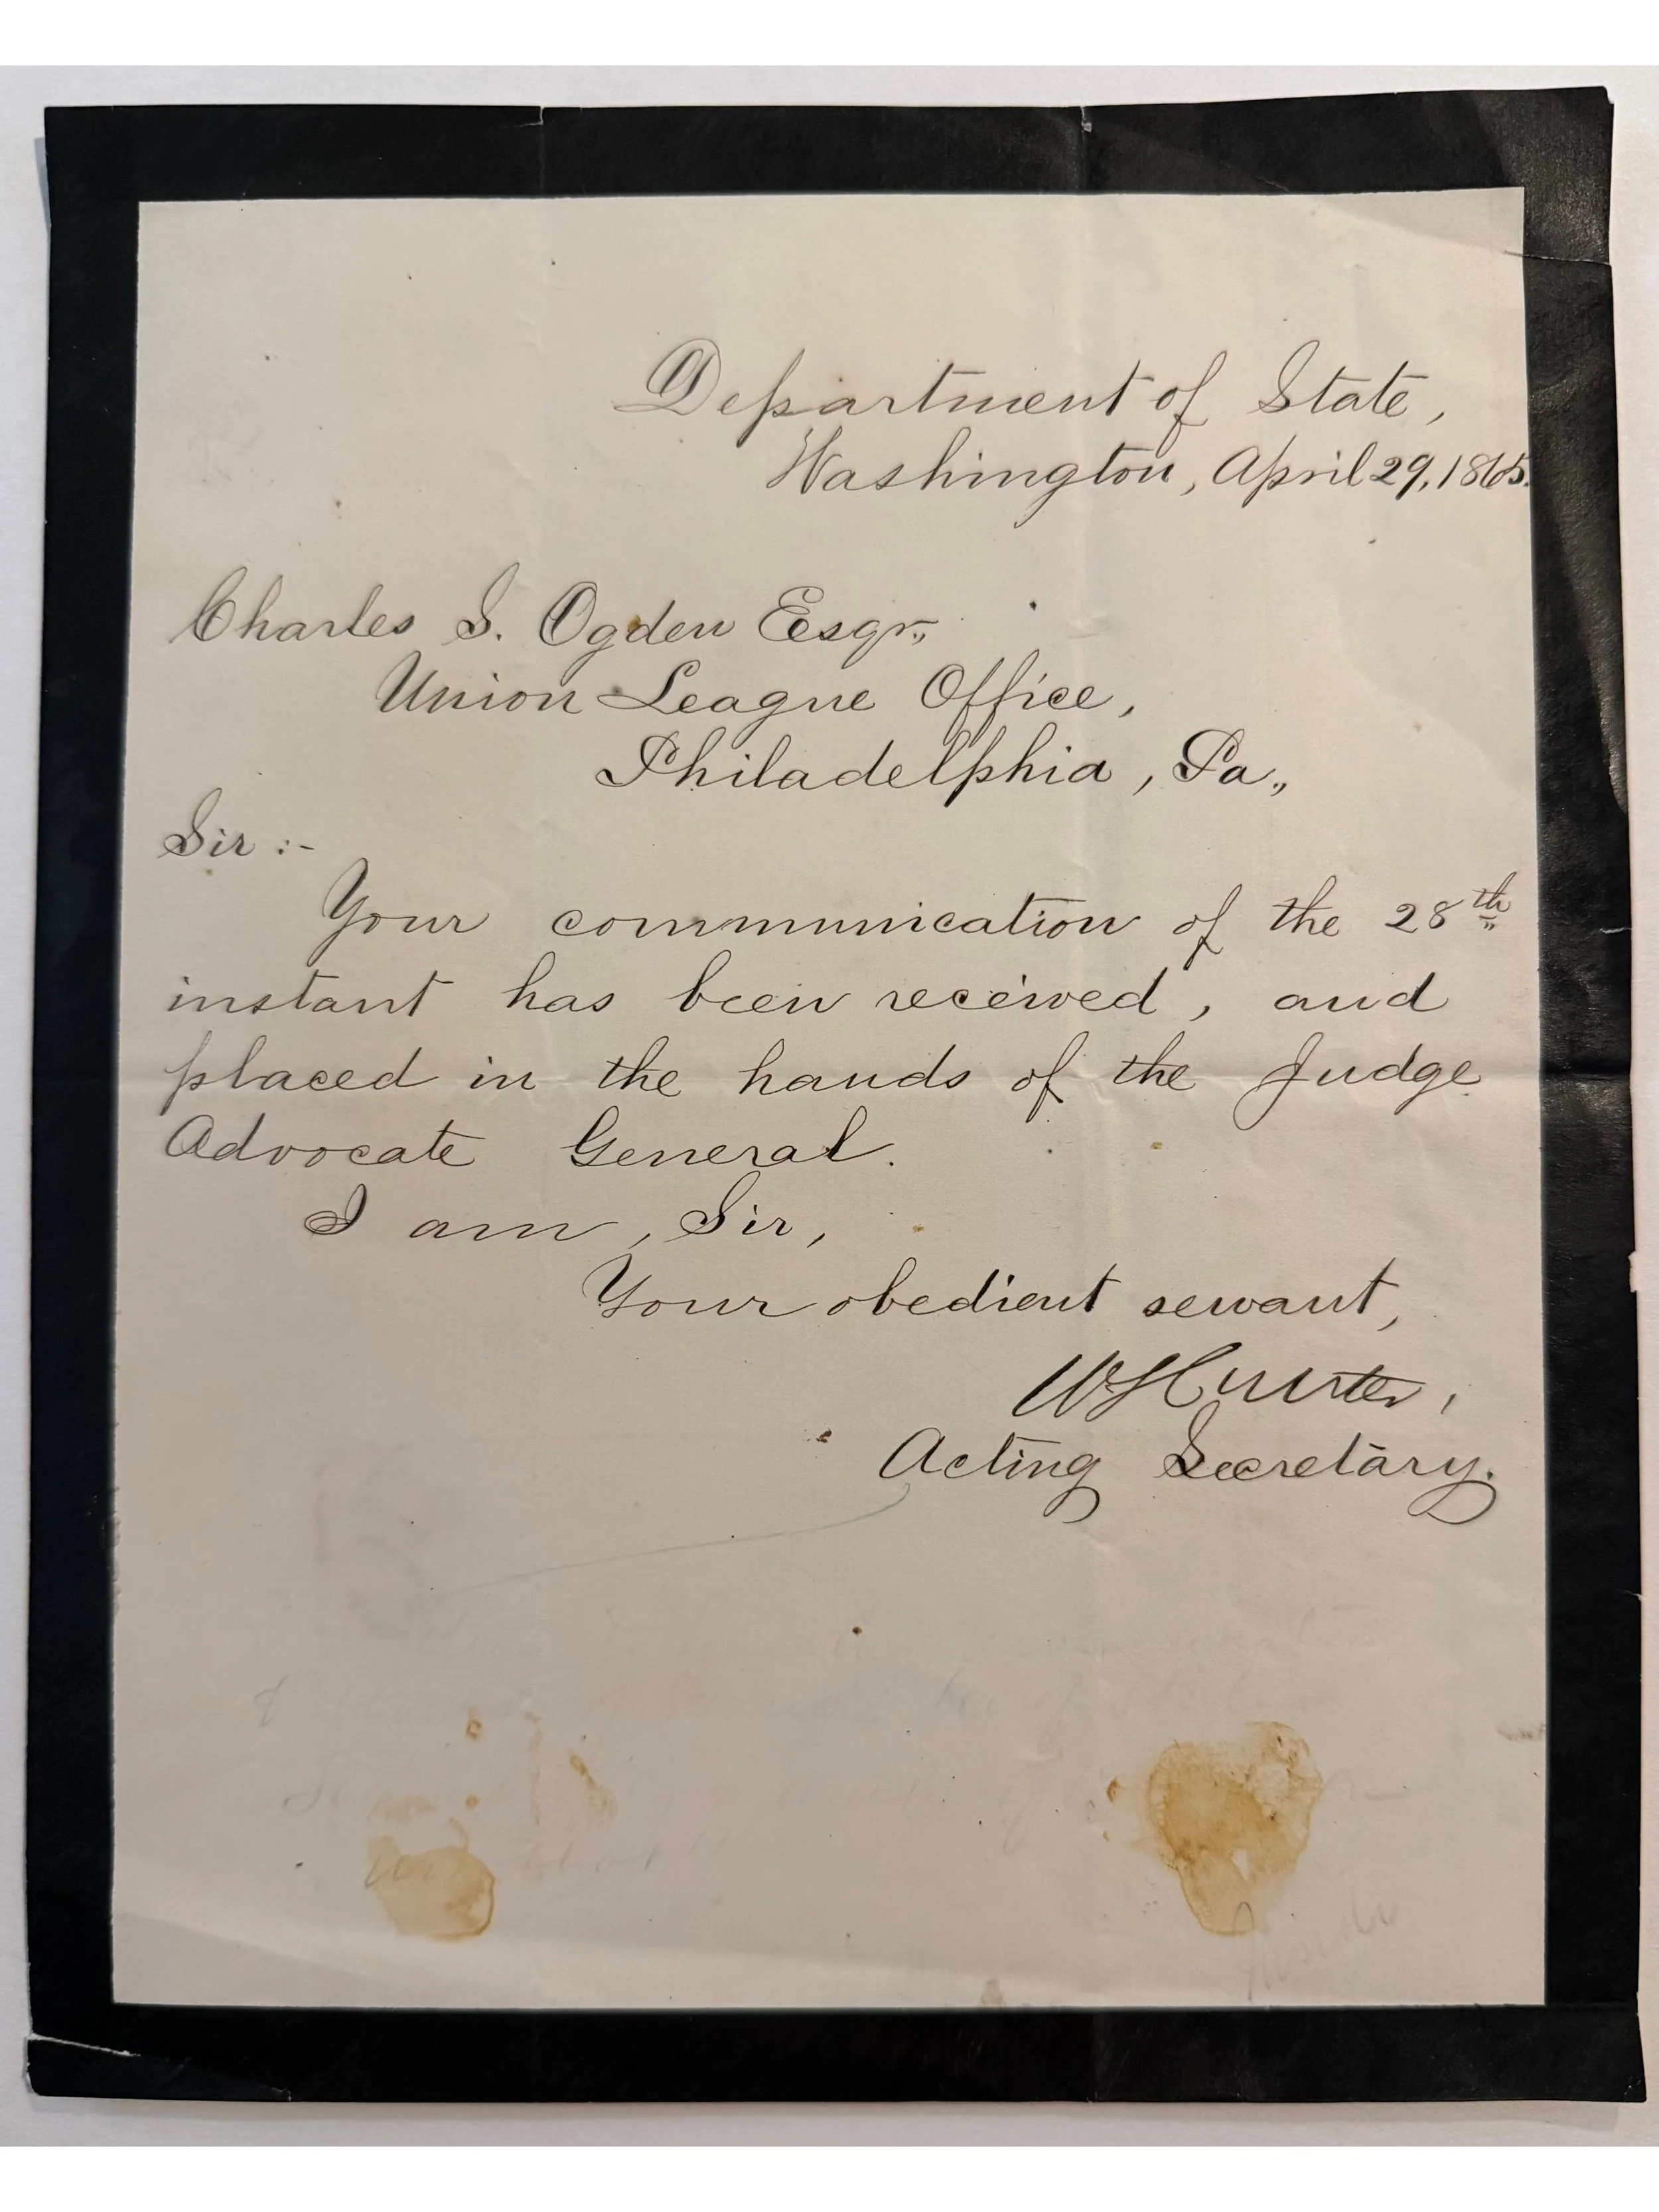 Department of State,
Washington, April 29, 1865.
Charles S. Ogden Esqr.,
Union League Office,
Philadelphia, Pa.,
Sir :-
Your communication of the 28th
instant has been received, and
placed in the hands of the Judge
Advocate General.
I am, Sir,
Your obedient servant,
W Hunter,
Acting Secretary.